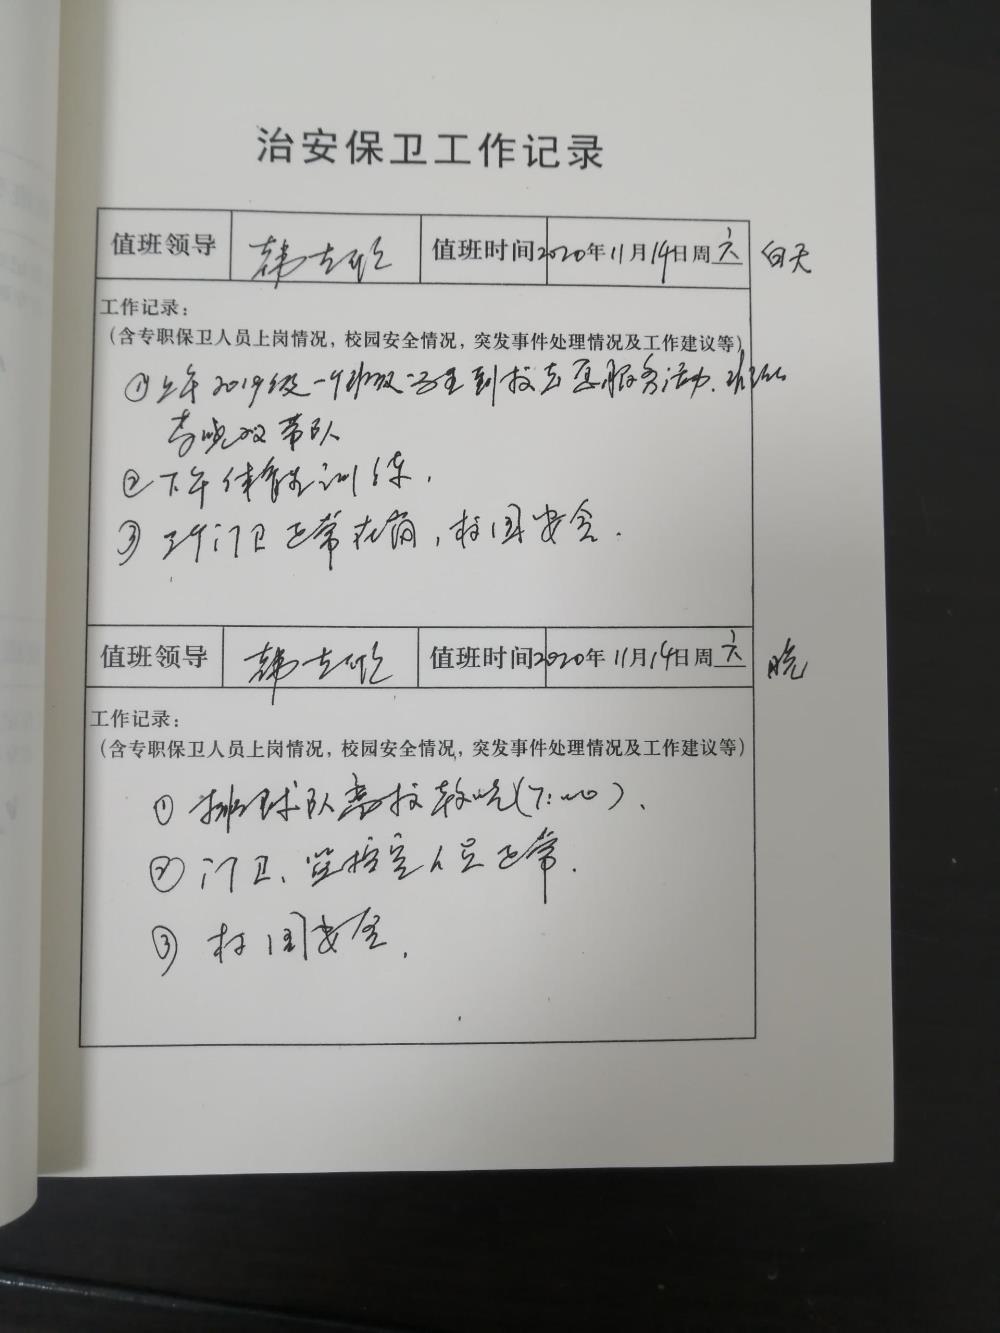 治安保卫工作记录
值班领导 韩 值班时间 2020年11月14日周六 白天
工作记录：
（含专职保卫人员上岗情况，校园安全情况，突发事件处理情况及工作建议等）
①上午2019级一个班级学生到校志愿服务活动，班主任
李晓双带队
②下午体育生训练，
③三个门卫正常在岗，校园安全．
值班领导 韩 值班时间 2020年11月14日周六 晚
工作记录：
（含专职保卫人员上岗情况，校园安全情况，突发事件处理情况及工作建议等）
①排球队离校较晚（7:00）．
②门卫、监控室人员正常．
③校园安全．